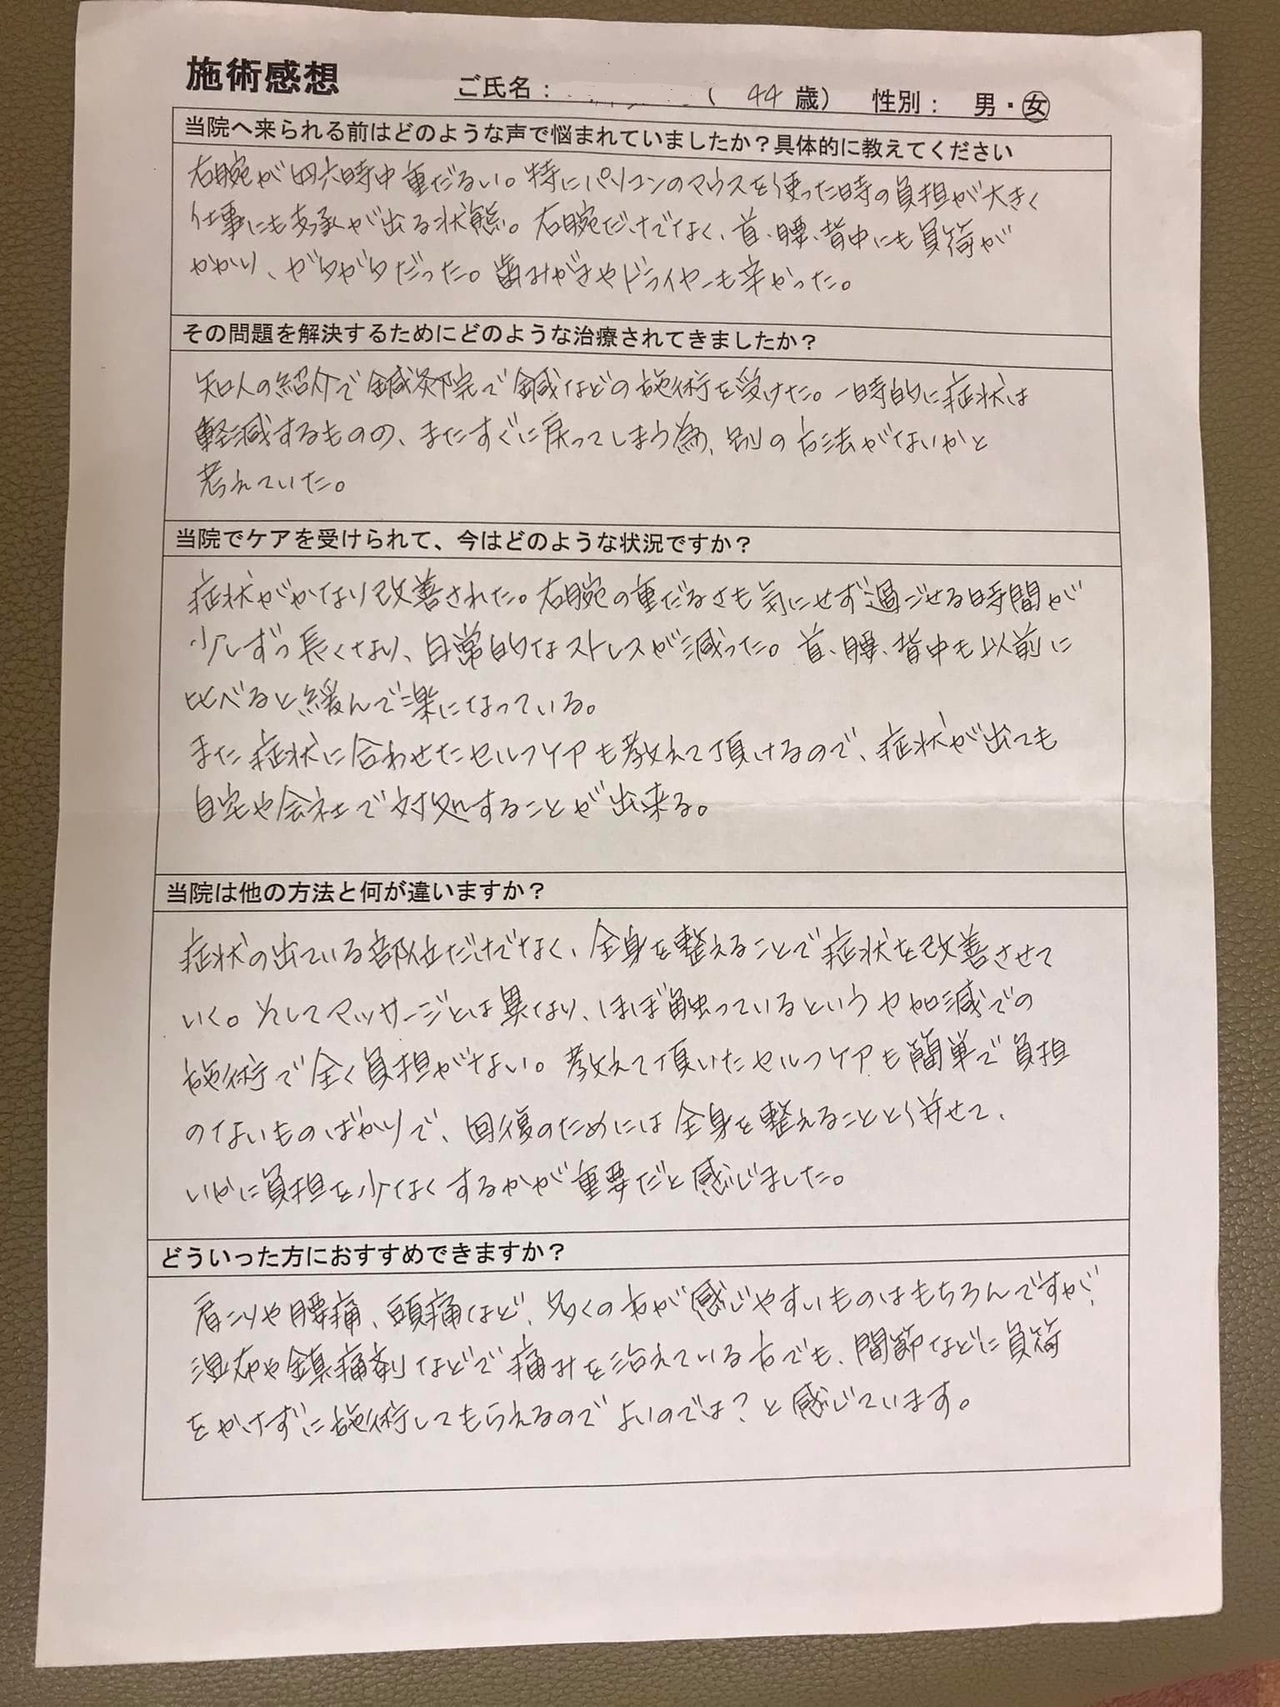 施術感想
ご氏名： （ 44 歳） 性別： 男・女
当院へ来られる前はどのような声で悩まれていましたか？具体的に教えてください
右腕が四六時中重だるい。特にパソコンのマウスを使った時の負担が大きく
仕事にも支承が出る状態。右腕だけでなく、首、腰、背中にも負荷が
かかり、ガタガタだった。歯みがきやドライヤーも辛かった。
その問題を解決するためにどのような治療されてきましたか？
知人の紹介で鍼灸院で鍼などの施術を受けた。一時的に症状は
軽減するものの、またすぐに戻ってしまう為、別の方法がないかと
考えていた。
当院でケアを受けられて、今はどのような状況ですか？
症状がかなり改善された。右腕の重だるさも気にせず過ごせる時間が
少しずつ長くなり、日常的なストレスが減った。首、腰、背中も以前に
比べると緩んで楽になっている。
また症状に合わせたセルフケアも教えて頂けるので、症状が出ても
自宅や会社で対処することが出来る。
当院は他の方法と何が違いますか？
症状の出ている部位だけでなく、全身を整えることで症状を改善させて
いく。そしてマッサージとは異なり、ほぼ触っているという力加減での
施術で全く負担がない。教えて頂いたセルフケアも簡単で負担
のないものばかりで、回復のためには全身を整えることと併せて、
いかに負担を少なくするかが重要だと感じました。
どういった方におすすめできますか？
肩こりや腰痛、頭痛など、多くの方が感じやすいものはもちろんですが、
湿布や鎮痛剤などで痛みを治えている方でも、関節などに負荷
をかけずに施術してもらえるのでよいのでは？と感じています。